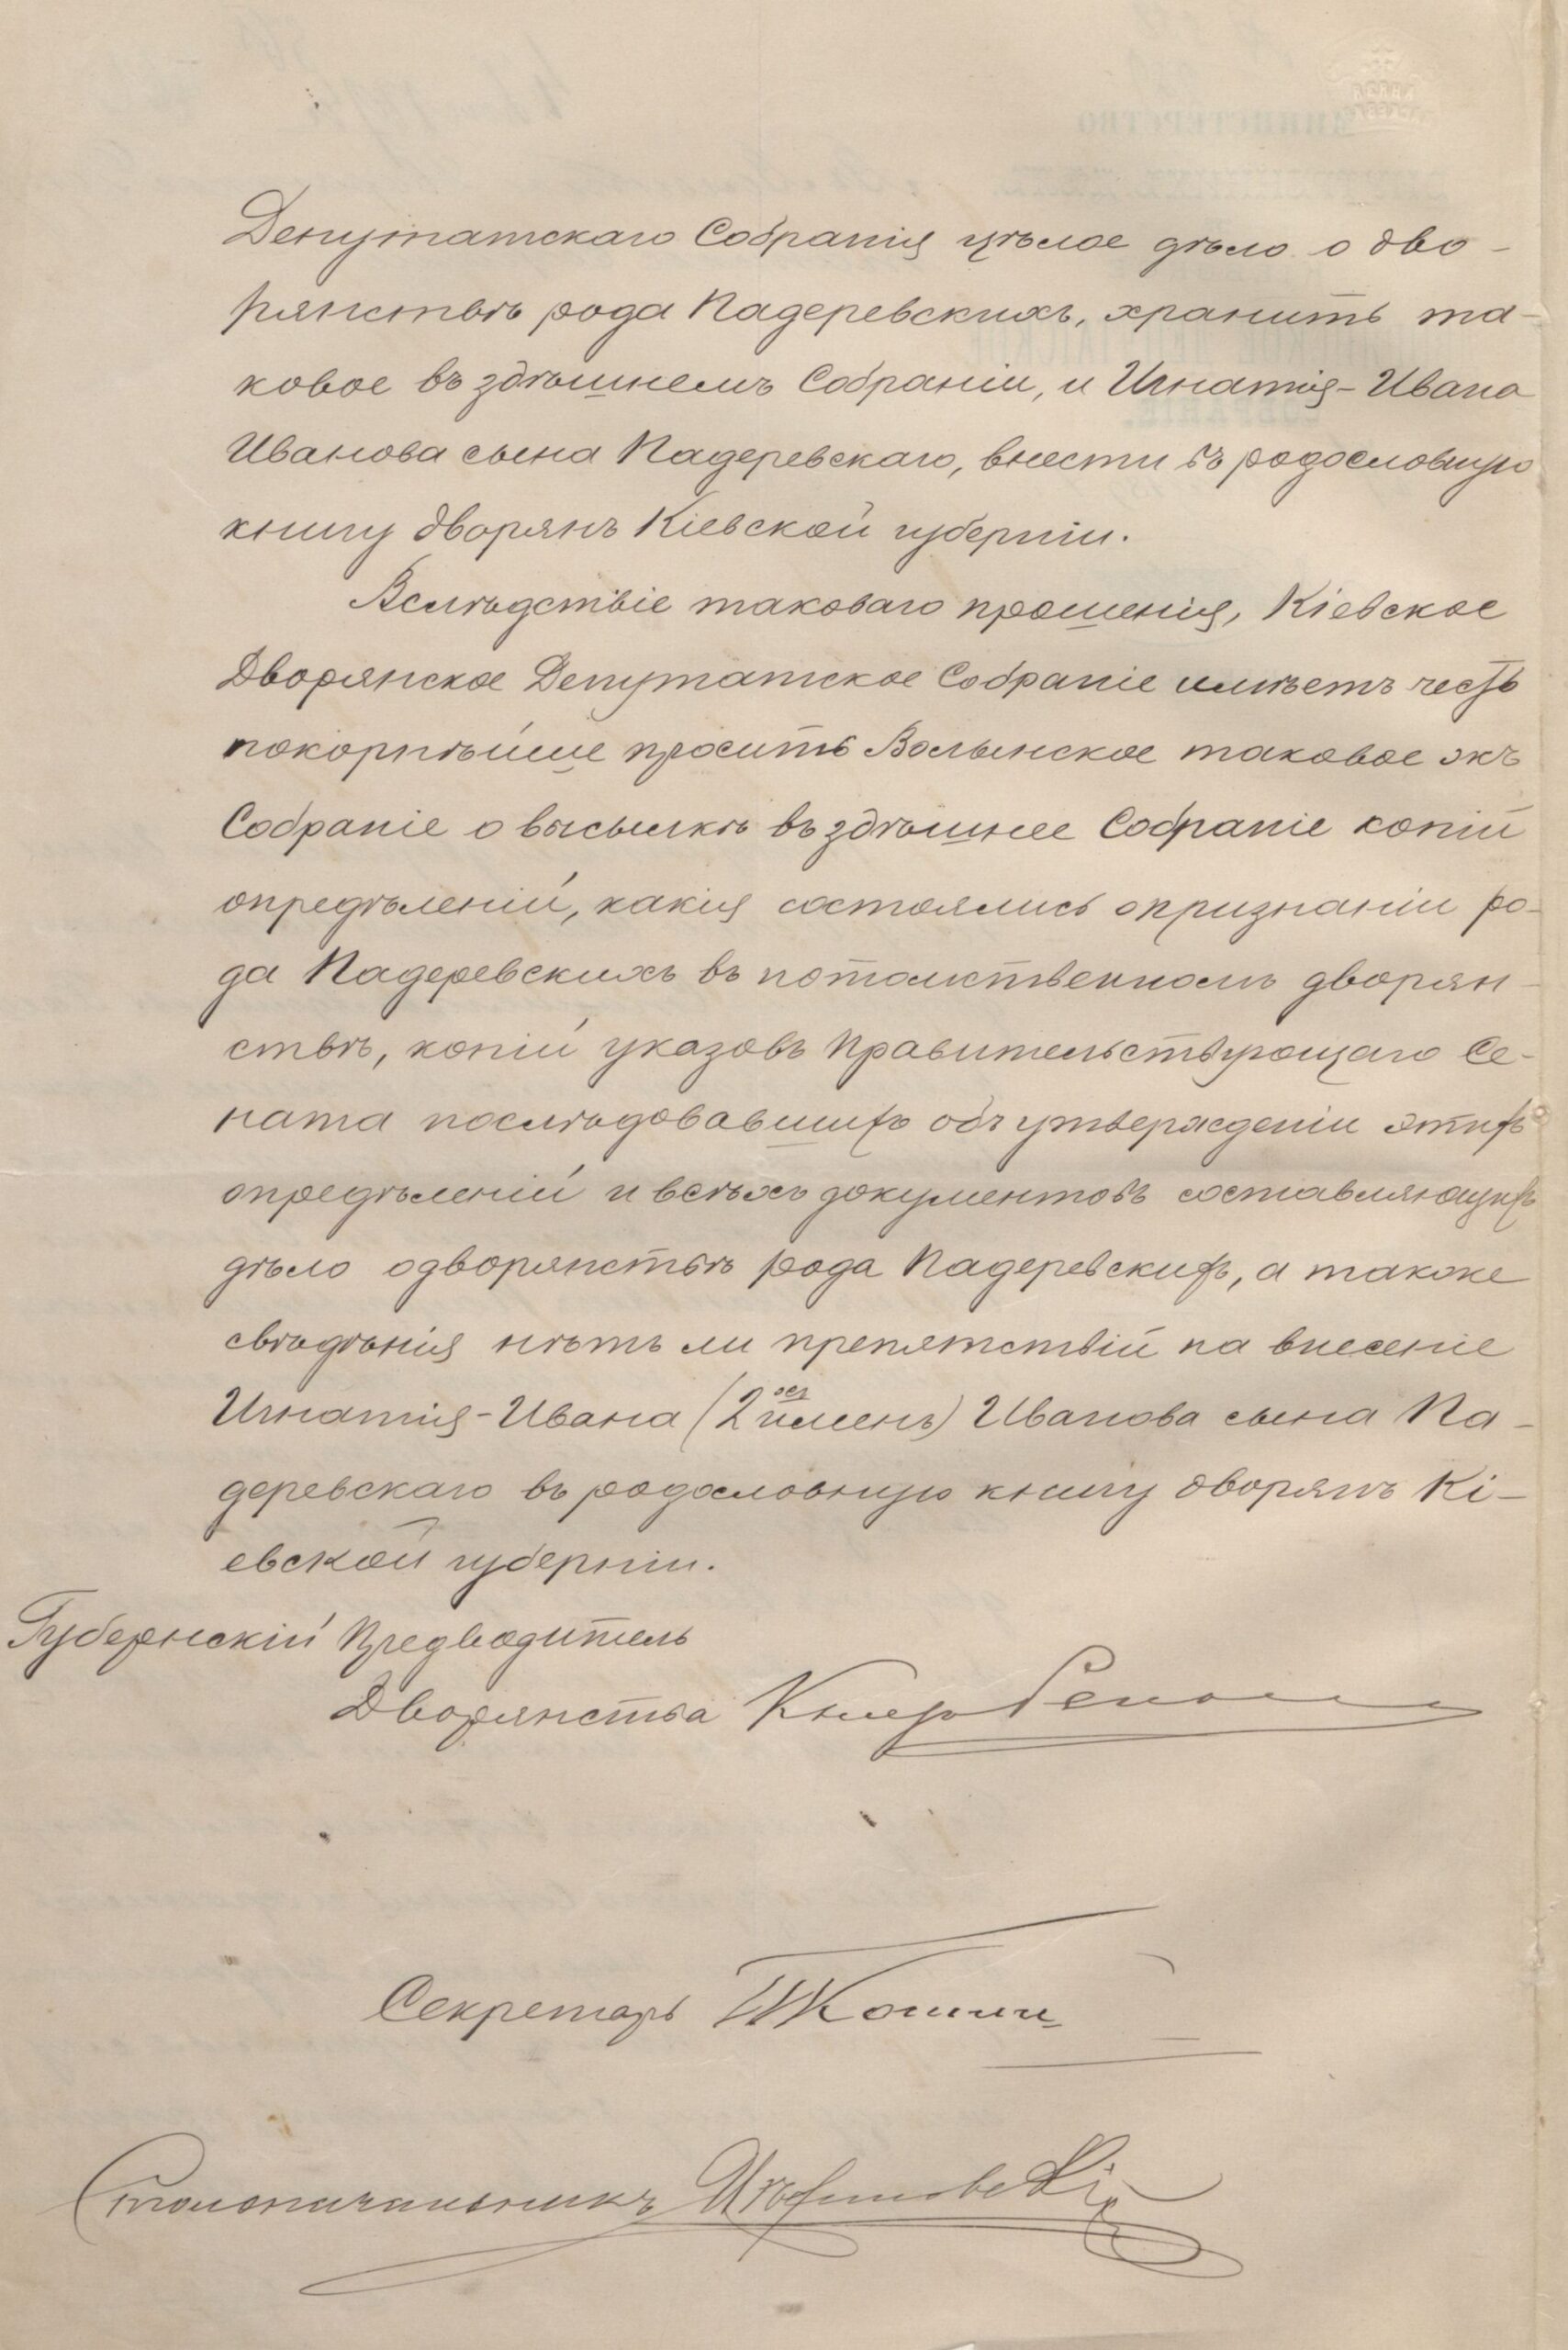 Депутатскаго Собранія цѣлое дѣло о дво-
рянствѣ рода Падеревскихъ, хранить та-
ковое въ здѣшнемъ Собраніи, и Игнатія-Ивана
Иванова сына Падеревскаго, внести въ родословную
книгу дворянъ Кіевской губерніи.
Вслѣдствіе таковаго прошенія, Кіевское
Дворянское Депутатское Собраніе имѣетъ честь
покорнѣйше просить Волынское таковое жъ
Собраніе о высылкѣ въ здѣшнее Собраніе копій
опредѣленій, какія состоялись о признаніи ро-
да Падеревскихъ въ потомственномъ дворян-
ствѣ, копій указовъ Правительствующаго Се-
ната послѣдовавшихъ объ утвержденіи этихъ
опредѣленій и всѣхъ документовъ составляющихъ
дѣло о дворянствѣ рода Падеревскихъ, а также
свѣдѣнія нѣтъ ли препятствій на внесеніе
Игнатія-Ивана (2ухъ именъ) Иванова сына Па-
деревскаго въ родословную книгу дворянъ Кі-
евской губерніи.
Губернскій Предводитель
Дворянства Князь Репнинъ
Секретарь
Столоначальникъ